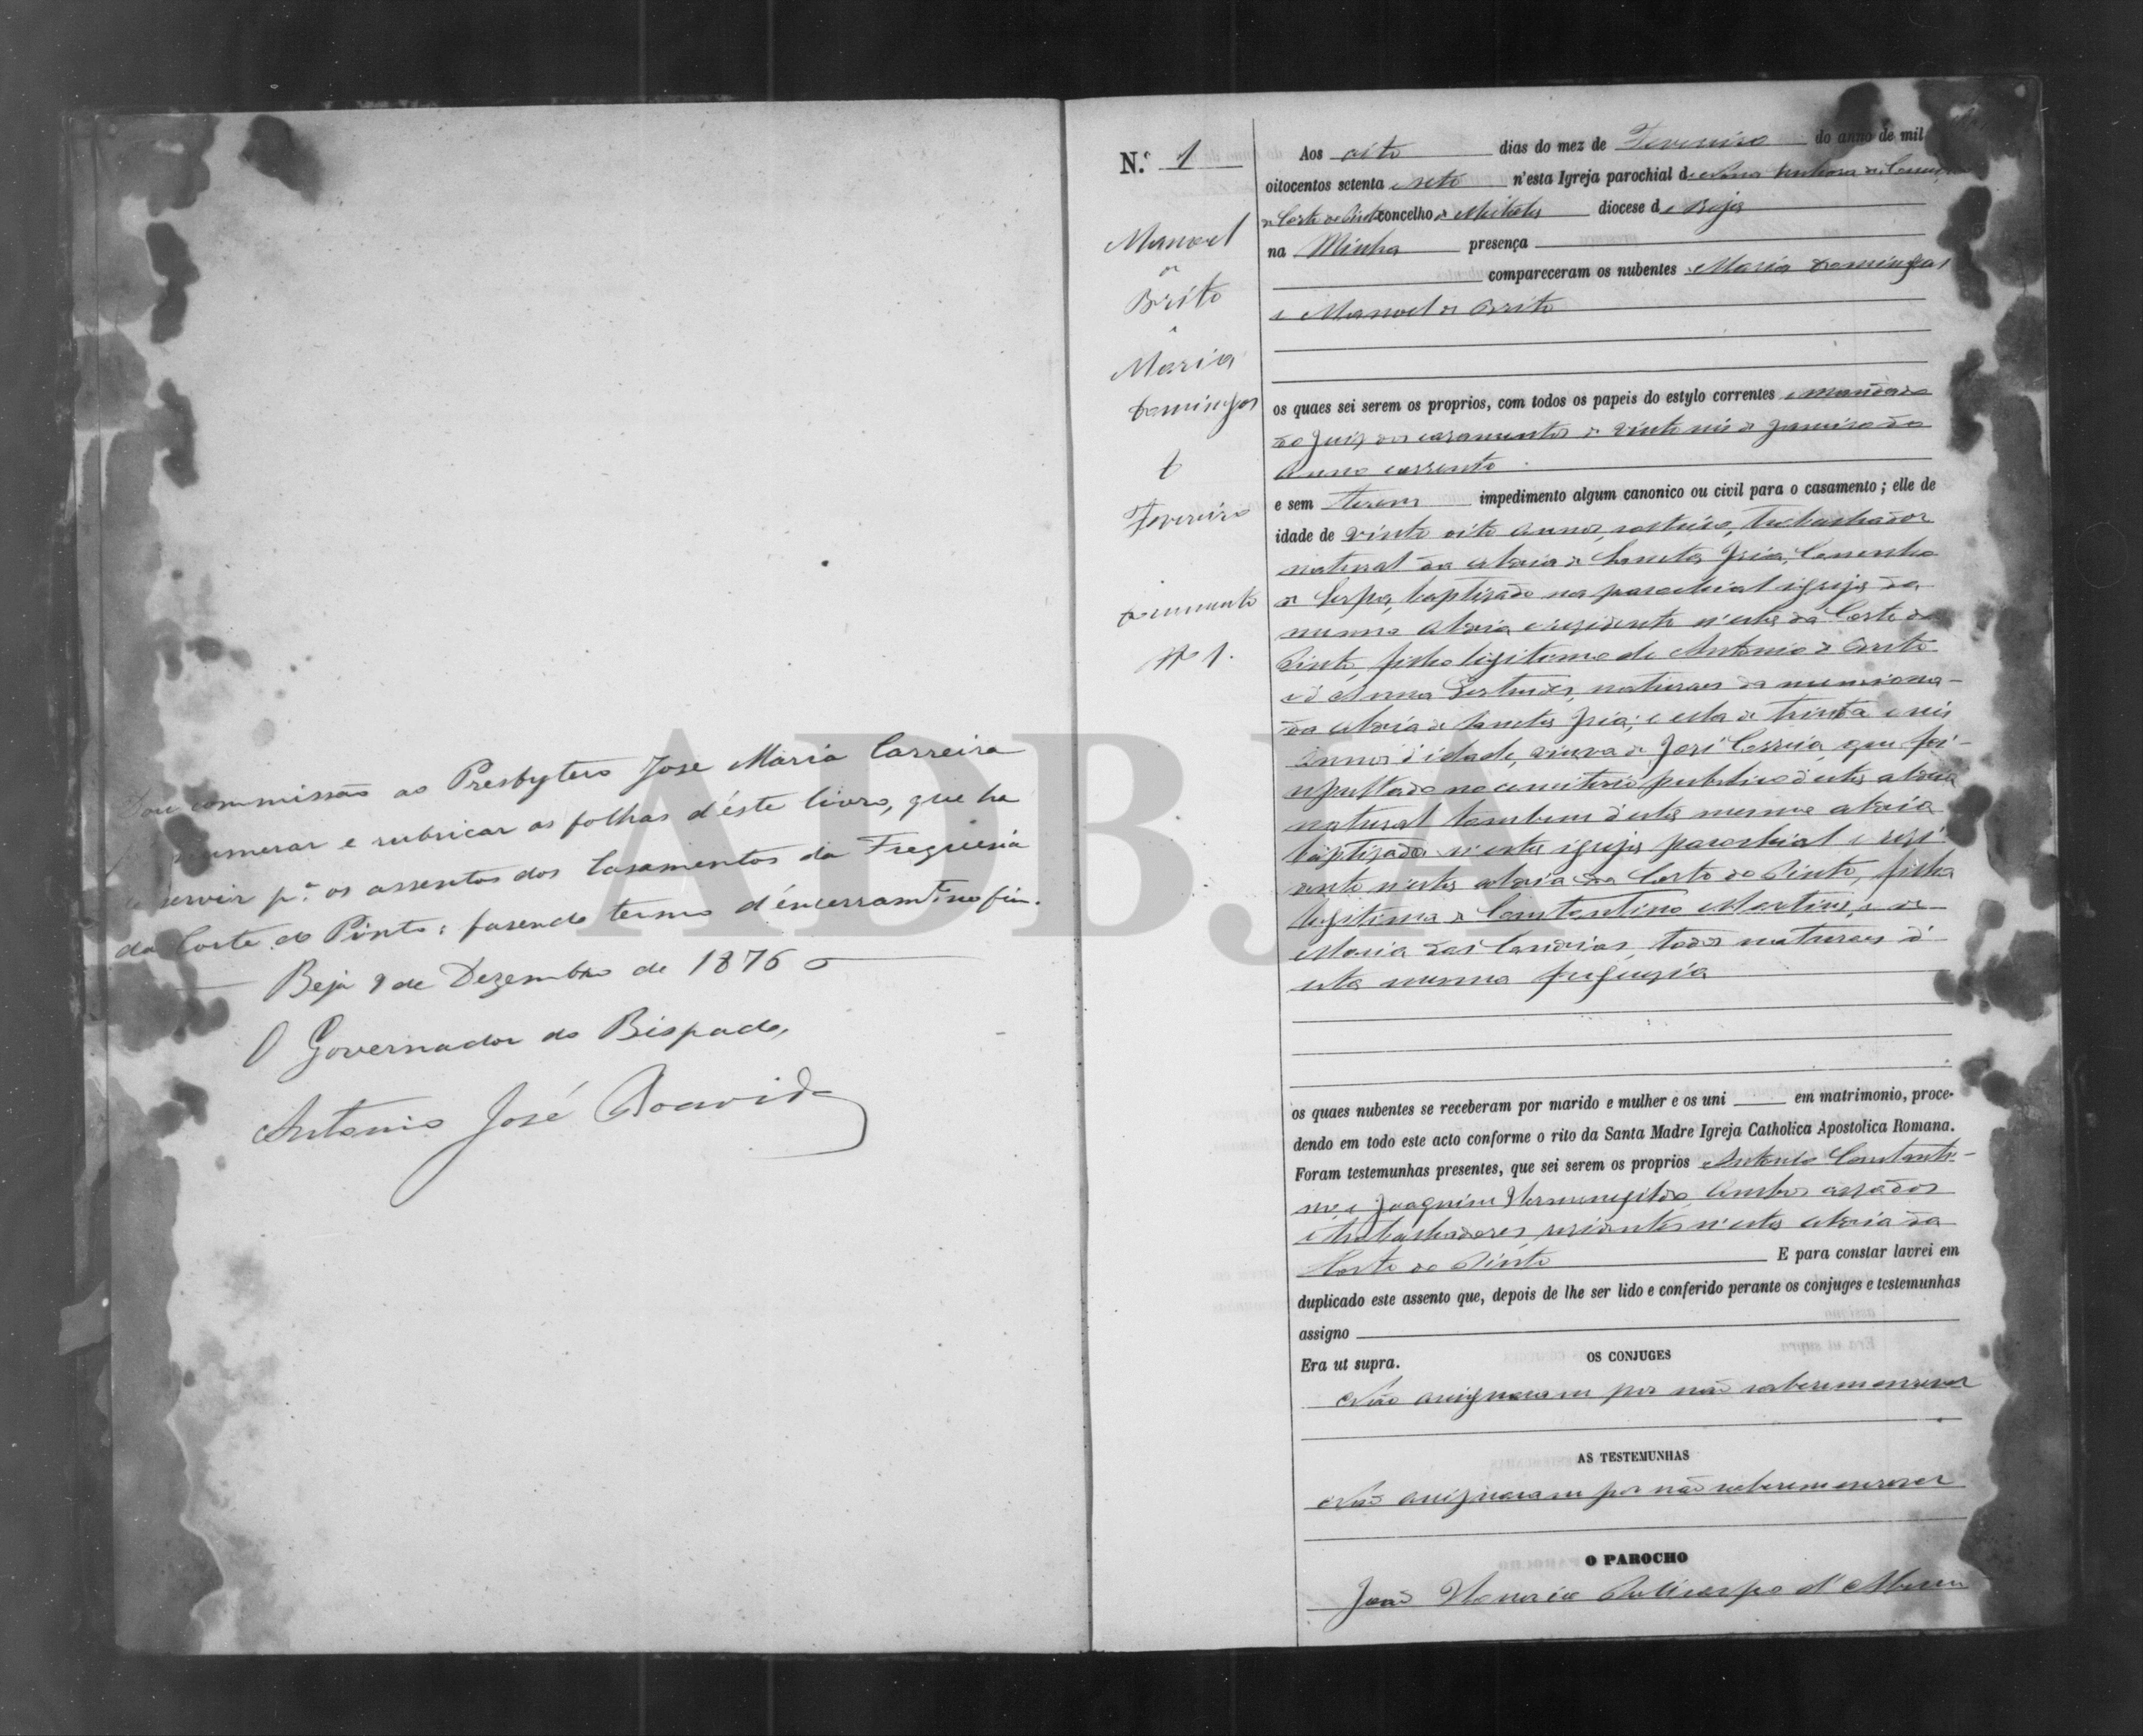 Dou commissão ao Presbytero Jose Maria Carreira
numerar e rubricar as folhas d'éste livro, que ha
servir p.ª os assentos dos Casamentos da Freguesia
da Corte do Pinto; fasendo termo d'éncerram.to no fim.
Beja 9 de Dezembro de 1876
O Governador do Bispado,
Antonio José Boavida
ADBJA
N.º 1
Manoel
de
Brito
e
Maria
Domingas
Fevereiro
Documento
Nº 1.
Aos oito dias do mez de Fevereiro do anno de mil
oitocentos setenta e sete n'esta Igreja parochial de Nossa Senhora da Conceição
da Corte do Pinto concelho de Mertola diocese de Beja
na Minha presença
compareceram os nubentes Maria Domingas
e Manoel de Brito
os quaes sei serem os proprios, com todos os papeis do estylo correntes e mandado
do Juiz dos casamentos de vinte seis de Janeiro do
anno corrente
e sem terem impedimento algum canonico ou civil para o casamento; elle de
idade de vinte oito annos, solteiro, trabalhador
natural da aldeia de Santa Iria, Concelho
de Serpa, baptizado na parochial igreja da
mesma aldeia e residente n'esta da Corte do
Pinto, filho legitimo de Antonio de Brito
e d'Anna Gertrudes, naturaes da menciona-
da aldeia de Santa Iria; e ella de trinta e seis
annos d'idade, viuva de José Correia, que foi
sepultado no cemiterio publico d'esta aldeia
natural tambem d'esta mesma aldeia
baptizada n'esta igreja parochial e resi-
dente n'esta aldeia da Corte do Pinto, filha
legitima de Constantino Martins, e de
Maria das Candeias, todos naturaes d'
esta mesma freguezia
os quaes nubentes se receberam por marido e mulher e os uni em matrimonio, proce-
dendo em todo este acto conforme o rito da Santa Madre Igreja Catholica Apostolica Romana.
Foram testemunhas presentes, que sei serem os proprios Antonio Constanti-
no e Joaquim Hermenegildo, ambos casados
e trabalhadores, residentes n'esta aldeia da
Corte do Pinto E para constar lavrei em
duplicado este assento que, depois de lhe ser lido e conferido perante os conjuges e testemunhas
assigno
Era ut supra.
OS CONJUGES
Não assignaram por não saberem escrever
AS TESTEMUNHAS
Não assignaram por não saberem escrever
O PAROCHO
João Policarpo d'